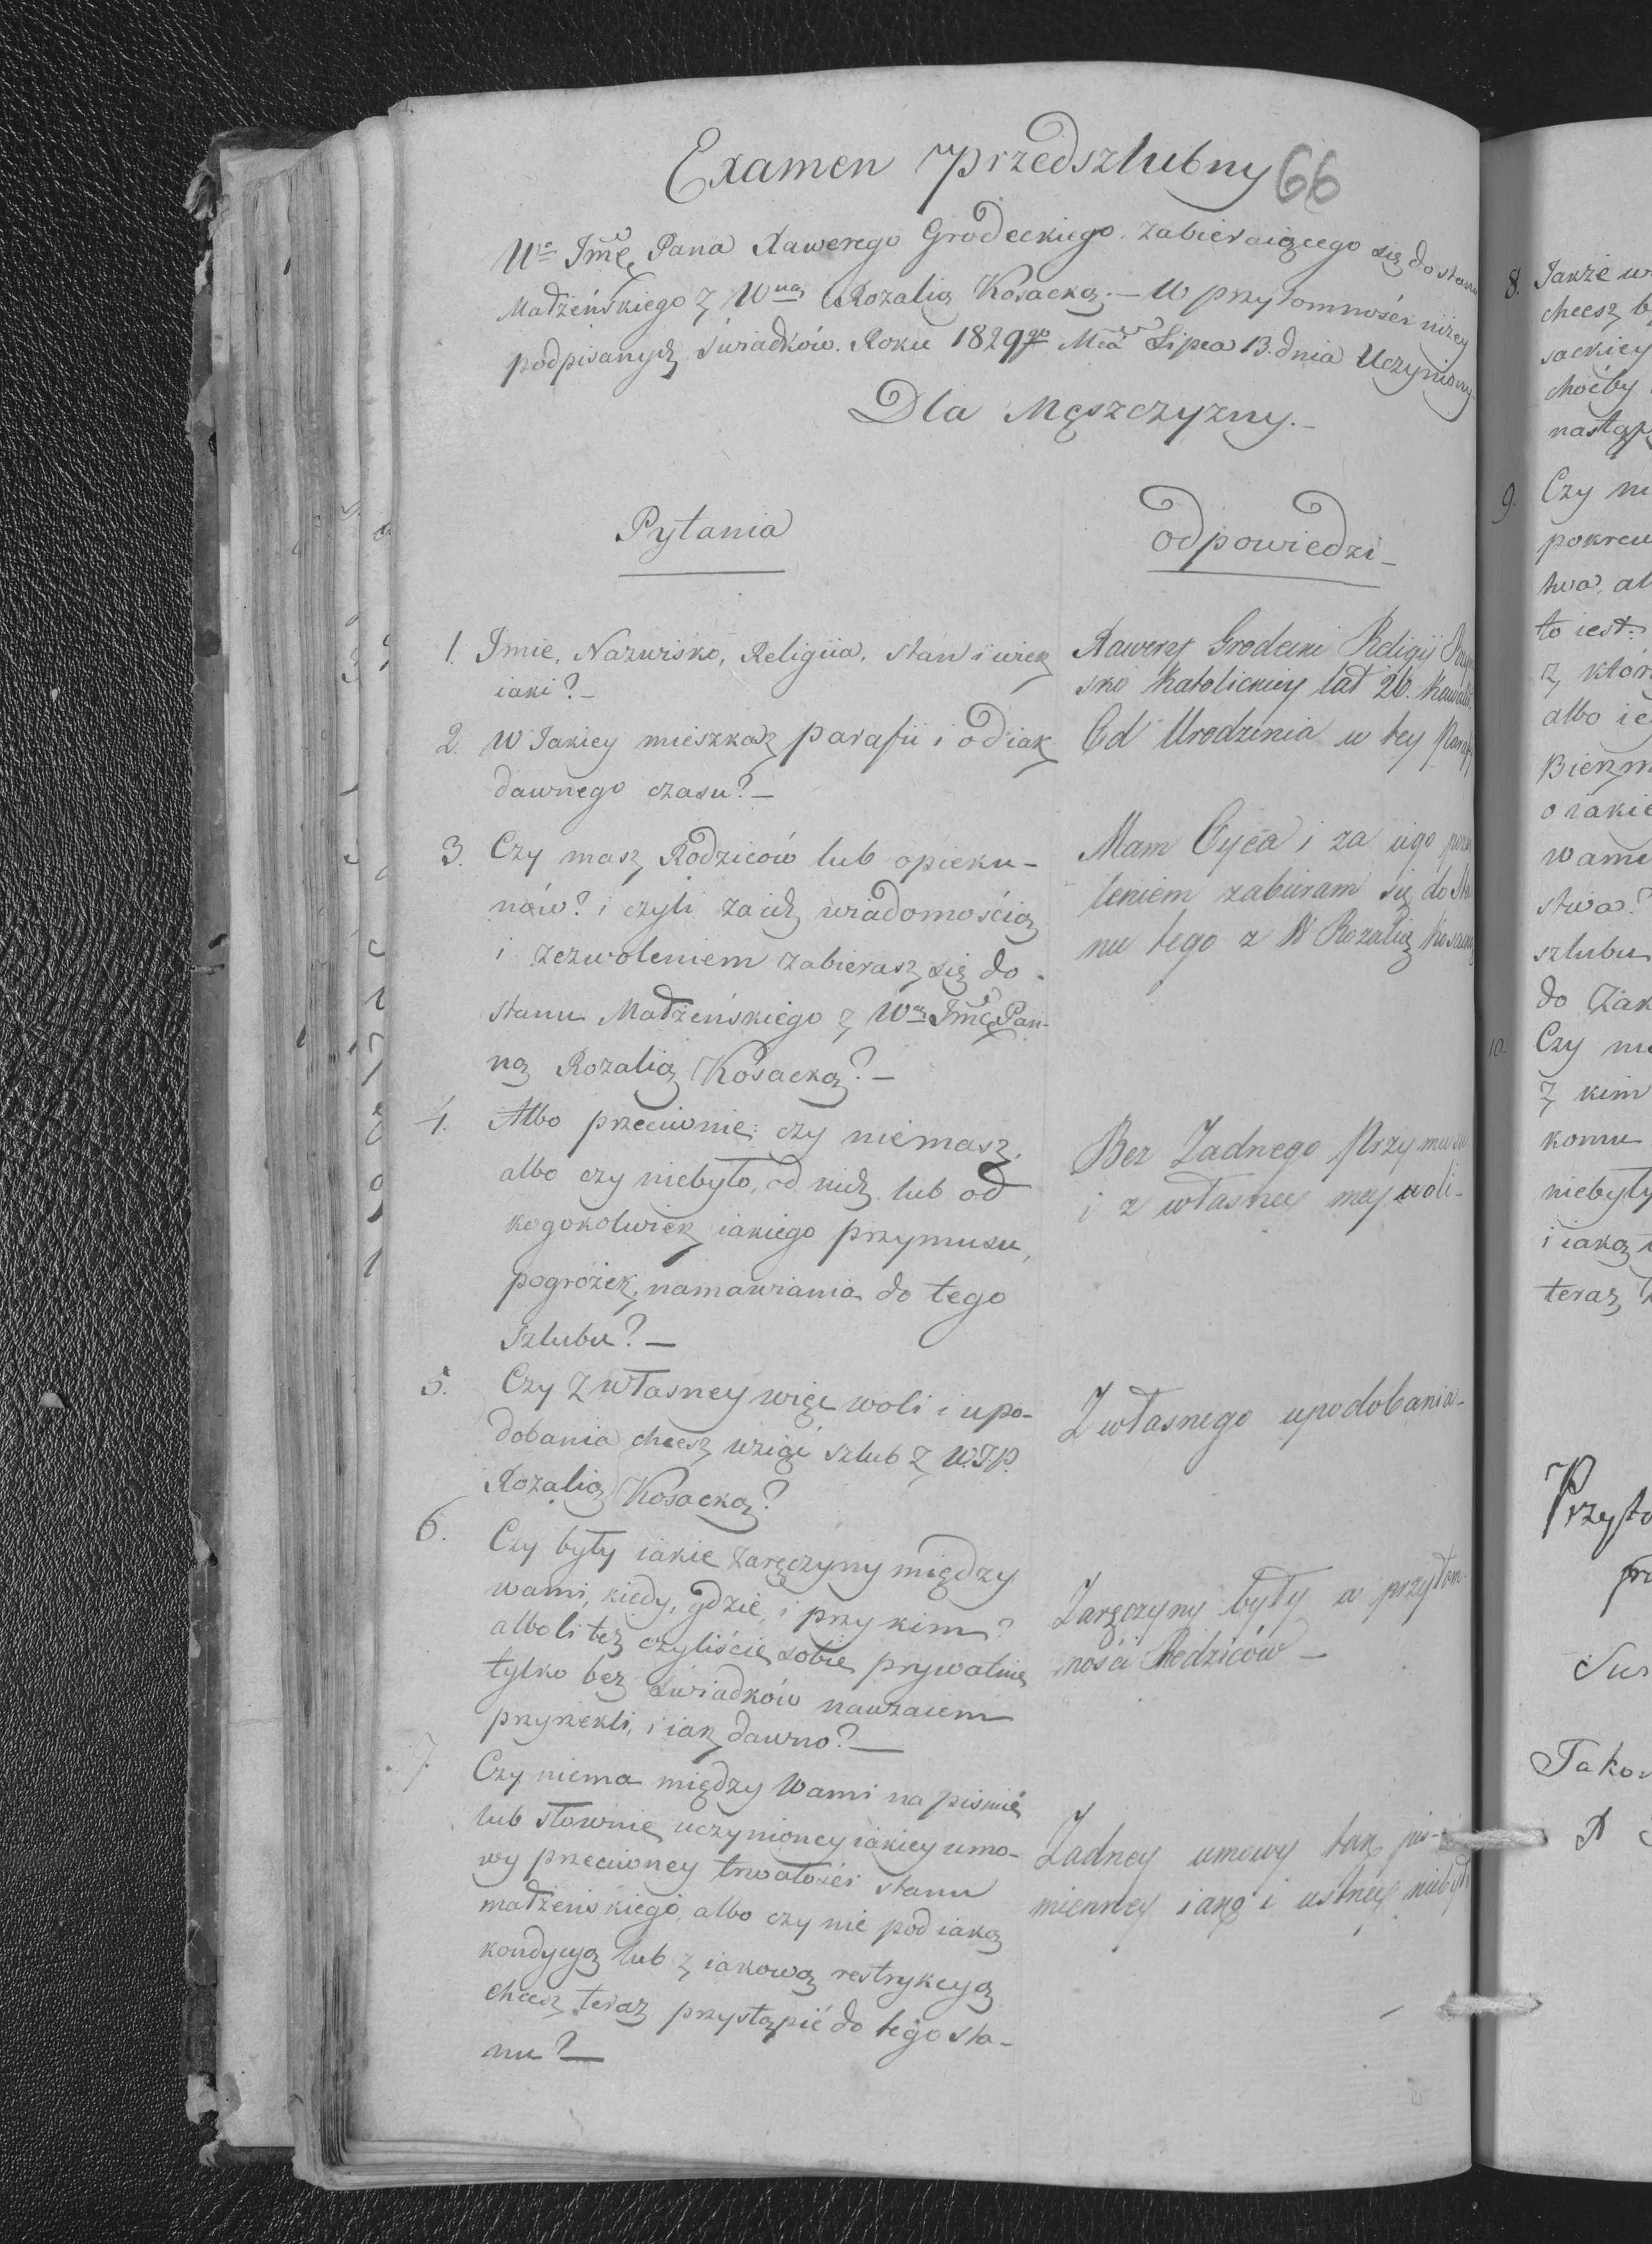 Examen przedszlubny 66
Wo Jmć Pana Xawerego Grodeckiego zabieraiącego się do stanu
Małżeńskiego z Wną Rozalią Kosacką. — W przytomności niżey
podpisanych świadków. Roku 1829go Mca Lipca 13. dnia Uczyniony
Dla Męszczyzny. —
Pytania
odpowiedzi —
1. Imie, Nazwisko, Religiia, stan i wiek
iaki? —
Xawery Grodecki Religij
sko Katolickiey lat 26. Kawaler
2. W Jakiey mieszkasz parafii i od iak
dawnego czasu? —
Od Urodzenia w tey Parafij
3. Czy masz Rodziców lub opieku-
nów? i czyli za ich wiadomością
i zezwoleniem zabierasz się do
stanu Małżeńskiego z Wą Jmć Pan-
ną Rozalią Kosacką? —
Mam Oyca i za iego pozwo
leniem zabieram się do Sta
nu tego z W Rozalią Kosacką
4. Albo przeciwnie: czy niemasz,
albo czy niebyło, od nich lub od
kogokolwiek iakiego przymusu,
pogróżek, namawiania do tego
szlubu? —
Bez Żadnego Przymusu
i z własney mey woli —
5. Czy z własney więc woli i upo-
dobania chcesz wziąć szlub z W.J.P.
Rozalią Kosacką?
Z własnego upodobania —
6. Czy były iakie zaręczyny między
wami, kiedy, gdzie, i przy kim?
alboli też czyliście sobie prywatnie
tylko bez świadków nawzaiem
przyrzekli, i iak dawno? —
Zaręczyny były w przytom-
ności Rodziców —
7. Czy niema między Wami na piśmie
lub słownie uczynioney iakiey umo-
wy przeciwney trwałości stanu
małżeńskiego, albo czy nie pod iaką
kondycyą lub z iakową restrykcyą
chcesz teraz przystąpić do tego sta-
nu? —
Żadney umowy tak piś-
mienney iako i ustney niebyło
8. Jakże w
chcesz b
sackiey
choćby
nastąp
9. Czy ni
pokrew
twa, al
to iest:
z któr
albo ie
Bierzm
o iakie
wami
stwa?
szlubu
do Zak
10. Czy ni
z kim
komu
niebyły
i iaką
teraz
Przyto
pr
Takow
X